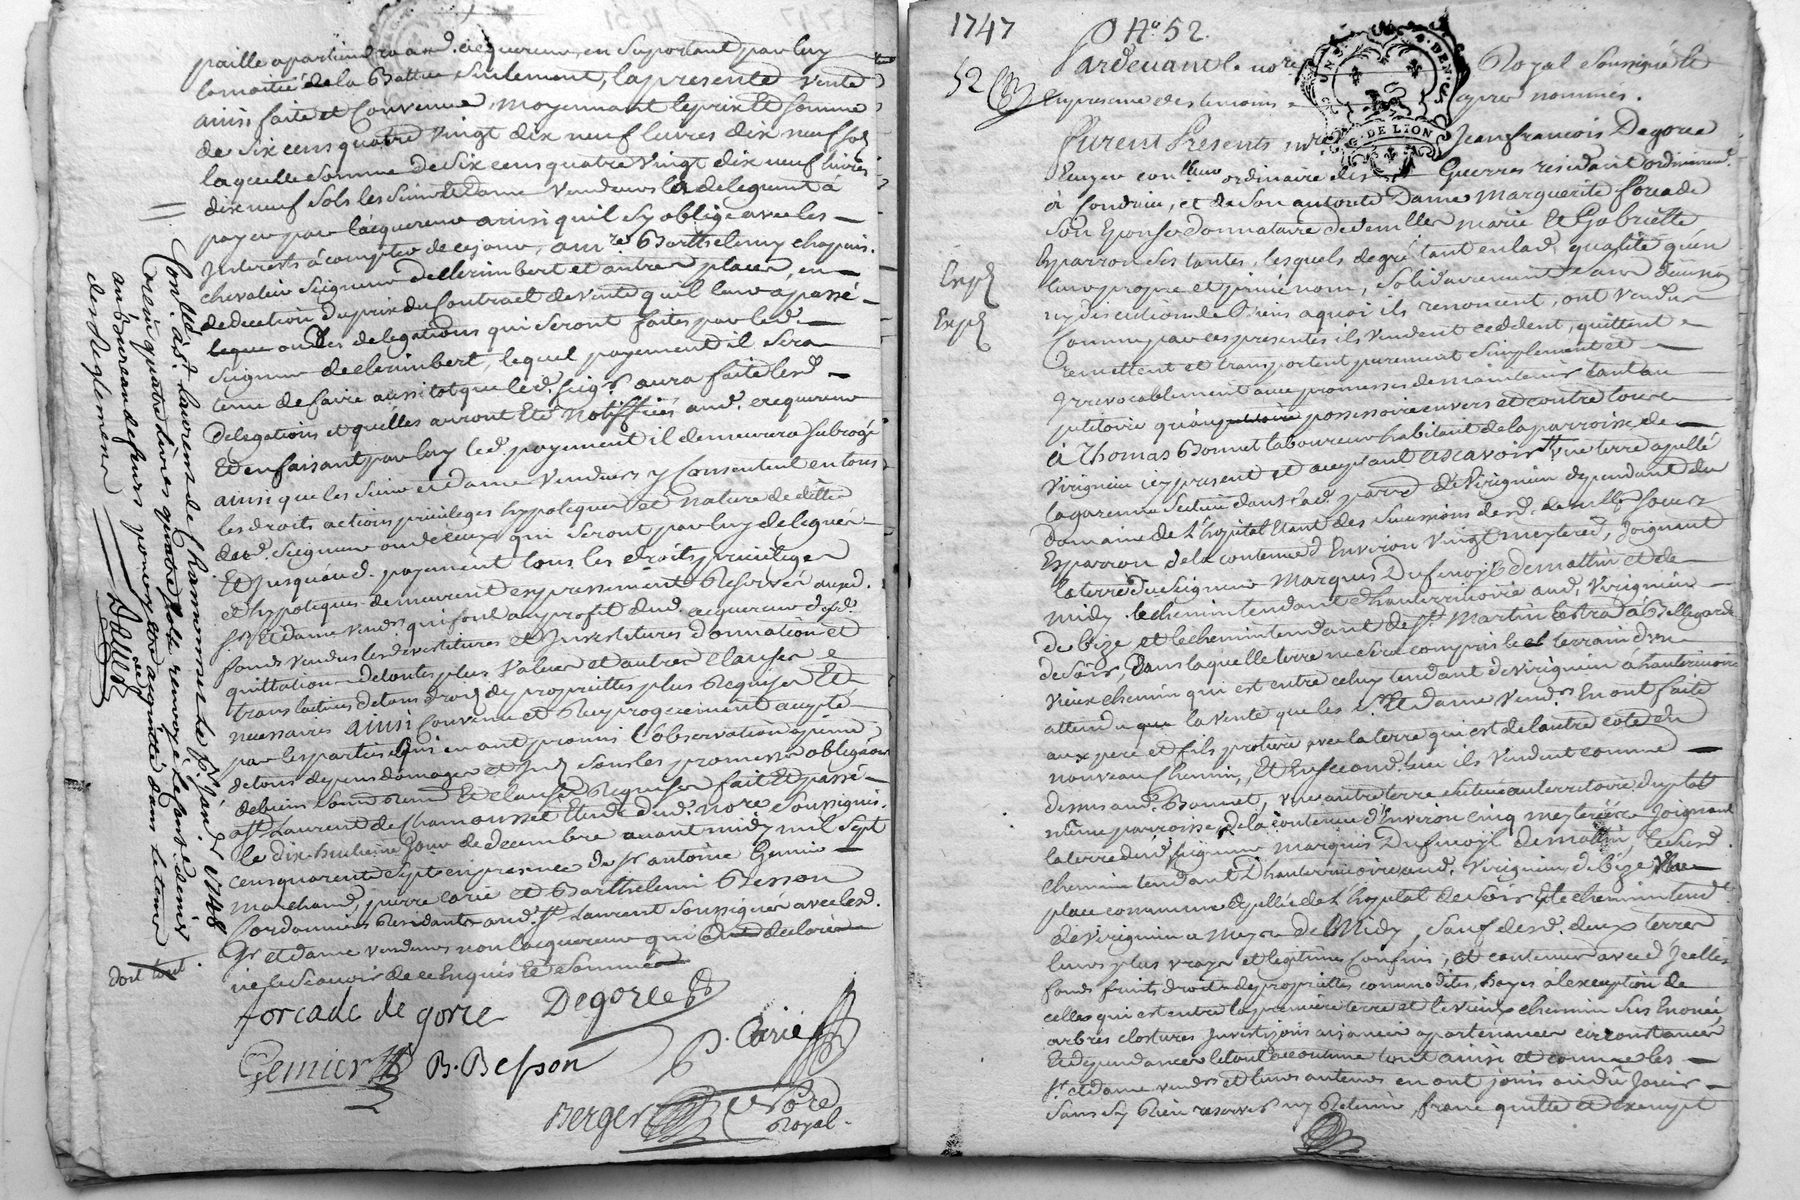 paille apartiendra aud. acquereur, en suportant par luy
la moitié de la Battue seulement, la presente vente
ainsi faite et Convenue, moyennant le prix et somme
de six cens quatre vingt dix neuf livres dix neuf sols
laquelle somme de six cens quatre vingt dix neuf livres
dix neuf sols les Sieur et dame vendeurs les deleguent à
payer par l'acquereur ainsi qu'il s'y oblige avec les
Interests à compter de ce jour, a mre Barthelemy chapuis
chevalier Seigneur de Clerimbert et autres places, en
deduction du prix du Contract de vente qu'il leur a passé
ou Les delegations qui seront faites par led.
Seigneur de Clerimbert, lequel payement il sera
tenu de faire aussitot que led. seigr aura faite lesd.
Delegations et qu'elles auront Eté Notiffiées aud. acquereur
Et en faisant par luy led. payement il demeurera subrogé
ainsi que les Sieur et dame Vendeurs y Consentent en tous
les droits actions privileges hypoteques et nature de dettes
dud. Seigneur ou de ceux qui seront par luy delegués
Et Jusqu'aud. payement tous les droits privileges
et hypoteques demeurent expressement Reservés auxd.
sr Et dame vendrs qui font au profit dud. acquereur desd.
fonds vendus les devestitures et Investitures donnation et
quittation de toutes plus Values et autres clauses
translatives de tous droits de proprietés plus Requises Et
necessaires ainsi Convenu et Reciproquement accepté
par les parties qui en ont promis l'observation à peine
de tous depens domages et Jnd. sous les promesses obligãons
de biens soumãons Et clauses Requises fait Et passé
a St. Laurent de Chamousset Etude dud. nore soussigné
le dix huitieme Jour de decembre avant midy mil sept
cens quarente sept en presence de sr antoine Gemier
marchand, pierre Carié et Barthelemi Besson
Cordonniers Residants aud. St. Laurent soussignés avec lesd.
sr et dame vendeurs non l'acquereur qui a declaré
ne le scavoir de ce Enquis Et Sommé
forcade de gorce Degorce
P. Carié
Gemier B. Besson
Berger Nore
Royal.
Conllé à St. Laurent de Chamousset le pr janvr 1748
Receu quatre livres quatre sols renvoyé le sans denier
au bureau de feurs pour y etre acquitté dans le tems
des Reglemens
dont tout.
1747
No. 52.
52
Pardevant le nore Royal soussigné et
en presence des temoins cy apres nommés.
GN. DE LION
Furent Presents mre Jean francois Degorce
Ecuyer conller ordinaire des Guerres residant ordinairemt.
à fondrieu, et de son autorité Dame Marguerite forcade
son Epouse donnataire de demlles marie Et Gabrielle
Esparron ses tantes, lesquels de gré tant en lad. qualité qu'en
leurs propre et privé nom, solidairement sans division
ny discution de biens a quoi ils renoncent, ont vendu
Comme par ces presentes ils vendent ceddent, quittent
remettent et transportent purement simplement et
Irrevocablement avec promesses de maintenir tant au
petitoire qu'au possessoire envers et contre tous
à Thomas Bonnet laboureur habitant de la parroisse de
Virignieu icy present et acceptant ascavoir une terre apellé
la garenne scituée dans lad. parre de Virignieu dependant du
domaine de L'hopital Etant des successions desd. demlles soeurs
Esparron de la contenue d'Environ Vingt meyterées, Joignant
la terre du Seigneur Marquis Dufenoyl de mattin et de
midy le chemin tendant d'hauterivoire aud. Virignieu
de bize et le chemin tendant de St. Martin lestra à Bellegarde
de soir, Dans laquelle terre ne sera compris le terrain d'un
vieux chemin qui est entre celuy tendant de virignieu à hauterivoire
attendu la vente que les sr. Et dame Vendrs En ont faite
aux pere et fils protiere avec la terre qui est de l'autre coté du
nouveau chemin, Et En second lieu ils vendent comme
dessus aud. Bonnet, une autre terre scituée au territoire du plat
même parroisse, de la contenue d'Environ cinq meyterées Joignant
la terre dud. seigneur Marquis Dufenoyl de mattin, le susd.
chemin tendant d'hauterivoire aud. Virignieu de bize Une
place commune apellée de L'hopital de soir Et le chemin tendt
de virignieu a Meys de Midy, sauf desd. deux terres
leurs plus vrayes et legitimes confins, et contenues avec d'Icelles
fonds fruits droits de proprietés commodités, hayes à l'exception de
celles qui est entre la premiere terre et le vieux chemin sus Enoncé
arbres clostures Investisons aisances apartenances circonstances
Et dependances le tout comme tout ainsi et comme les
sr. et dame vendrs et leurs auteurs en ont joui ou dû Jouir
sans s'y Rien reserver ny Retenir franc quitte et exempt
Expd
Expd